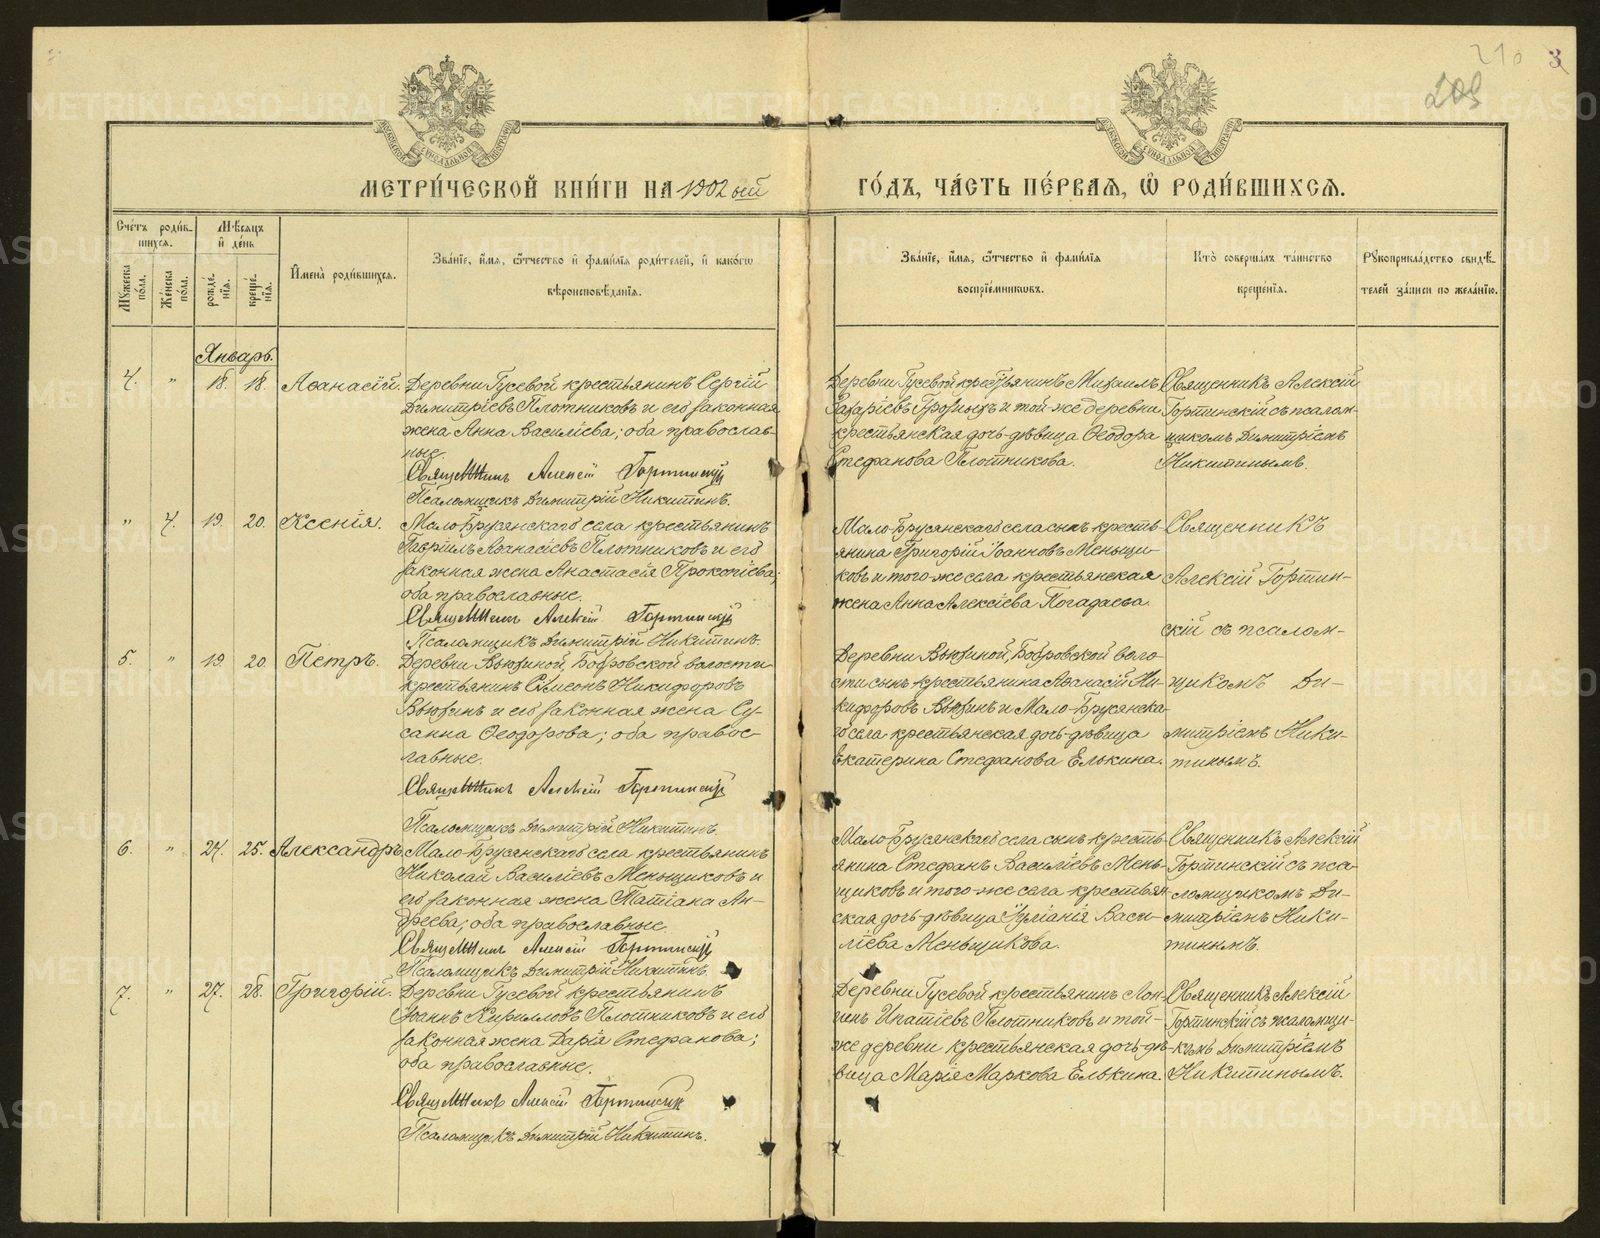 210 3
209
МЕТРИ́ЧЕСКОЙ КНИ́ГИ НА 1902 ый
ГО́ДЪ, ЧА́СТЬ ПЕ́РВАѦ, Ѡ҆ РОДИ́ВШИХСѦ.
Сче́тъ роди́в-
шихсѧ.
Мꙋжеска по́ла.
Же́нска по́ла.
Мѣ́сѧцъ
и҆ де́нь
рожде́-
нїѧ.
креще́-
нїѧ.
И҆мена̀ роди́вшихсѧ.
Зва́нїе, и҆́мѧ, ѻ҆́тчество и҆ фами́лїѧ роди́телей, и҆ како́гѡ
вѣроисповѣ́данїѧ.
Зва́нїе, и҆́мѧ, ѻ҆́тчество и҆ фами́лїѧ
воспрїе́мникѡвъ.
Кто̀ соверша́лъ та́инство
креще́нїѧ.
Рꙋкоприкла́дство свидѣ́-
телей за́писи по жела́нїю.
Январь.
4. " 18. 18. Аѳанасій.
Деревни Гусевой крестьянинъ Сергій
Димитріевъ Плотниковъ и его законная
жена Анна Василіева; оба православ-
ные.
Священникъ Алексій Гортинскій
Псаломщикъ Димитрій Никитинъ.
Деревни Гусевой крестьянинъ Михаилъ
Захаріевъ Грозныхъ и той-же деревни
крестьянская дочь-дѣвица Ѳеодора
Стефанова Плотникова.
Священникъ Алексій
Гортинскій съ псалом-
щикомъ Димитріемъ
Никитинымъ.
" 4. 19. 20. Ксенія.
Мало-Брусянскаго села крестьянинъ
Гавріилъ Аѳанасіевъ Плотниковъ и его
законная жена Анастасія Прокопіева;
оба православные.
Священникъ Алексій Гортинскій
Псаломщикъ Димитрій Никитинъ.
Мало-Брусянскаго села сынъ кресть-
янина Григорій Іоанновъ Меньщи-
ковъ и того-же села крестьянская
жена Анна Алексіева Погадаева.
Священникъ
Алексій Гортин-
скій съ псалом-
5. " 19. 20. Петръ.
Деревни Вьюхиной, Бобровской волости
крестьянинъ Симеонъ Никифоровъ
Вьюхинъ и его законная жена Су-
санна Ѳеодорова; оба правос-
лавные.
Священникъ Алексій Гортинскій
Псаломщикъ Димитрій Никитинъ.
Деревни Вьюхиной, Бобровской воло-
сти сынъ крестьянина Аѳанасій Ни-
кифоровъ Вьюхинъ и Мало-Брусянска-
го села крестьянская дочь-дѣвица
Екатерина Стефанова Елькина.
щикомъ Ди-
митріемъ Ники-
тинымъ.
6. " 24. 25. Александръ.
Мало-Брусянскаго села крестьянинъ
Николай Василіевъ Меньщиковъ и
его законная жена Татіана Ан-
дреева; оба православные.
Священникъ Алексій Гортинскій
Псаломщикъ Димитрій Никитинъ.
Мало-Брусянскаго села сынъ кресть-
янина Стефанъ Василіевъ Мень-
щиковъ и того-же села крестьян-
ская дочь-дѣвица Іуліанія Васи-
ліева Меньщикова.
Священникъ Алексій
Гортинскій съ пса-
ломщикомъ Ди-
митріемъ Ники-
тинымъ.
7. " 27. 28. Григорій.
Деревни Гусевой крестьянинъ
Іоаннъ Кирилловъ Плотниковъ и его
законная жена Дарія Стефанова;
оба православные.
Священникъ Алексій Гортинскій
Псаломщикъ Димитрій Никитинъ.
Деревни Гусевой крестьянинъ Лон-
гинъ Ипатіевъ Плотниковъ и той-
же деревни крестьянская дочь-дѣ-
вица Марія Маркова Елькина.
Священникъ Алексій
Гортинскій съ псаломщи-
комъ Димитріемъ
Никитинымъ.
METRIKI.GASO-URAL.RU